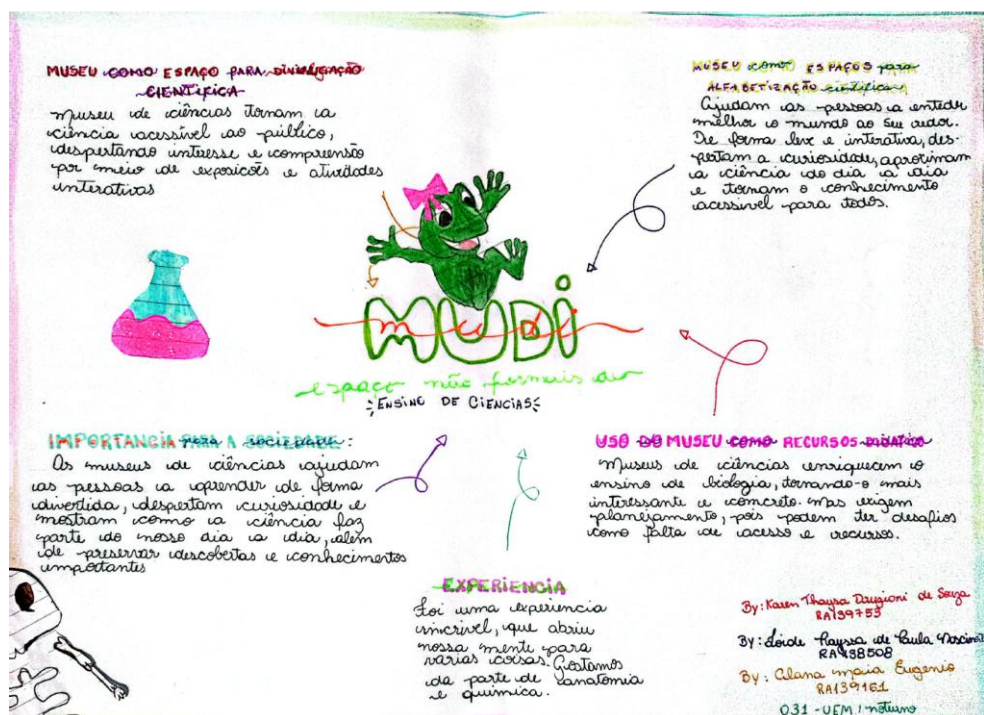 MUSEU COMO ESPAÇO PARA DIVULGAÇÃO
CIENTÍFICA
Museu de ciências tornam a
ciência acessível ao público,
despertando interesse e compreensão
por meio de exposições e atividades
interativas
MUSEU como ESPAÇOS para
ALFABETIZAÇÃO científica
Ajudam as pessoas a entender
melhor o mundo ao seu redor.
De forma leve e interativa, des-
pertam a curiosidade, aproximam
a ciência do dia a dia
e tornam o conhecimento
acessível para todos.
MUDI
mudi
espaço não formais de
ENSINO DE CIENCIAS
IMPORTANCIA para A sociedade:
Os museus de ciências ajudam
as pessoas a aprender de forma
divertida, despertam curiosidade e
mostram como a ciência faz
parte do nosso dia a dia, além
de preservar descobertas e conhecimentos
importantes
USO DO MUSEU COMO RECURSOS DIDATICO
Museus de ciências enriquecem o
ensino de biologia, tornando-o mais
interessante e concreto mas exigem
planejamento, pois podem ter desafios
como falta de acesso e recursos.
EXPERIENCIA
Foi uma experiencia
incrivel, que abriu
nossa mente para
varias coisas. Gostamos
da parte de anatomia
e quimica.
By: Karen Thaysa de Souza
RA139753
By: Loide Rayssa de Paula
RA138508
By: Alana maia Eugenio
RA139161
031 - UEM / noturno